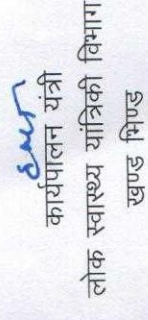 कार्यपालन यंत्री
लोक स्वास्थ्य यांत्रिकी विभाग
खण्ड भिण्ड